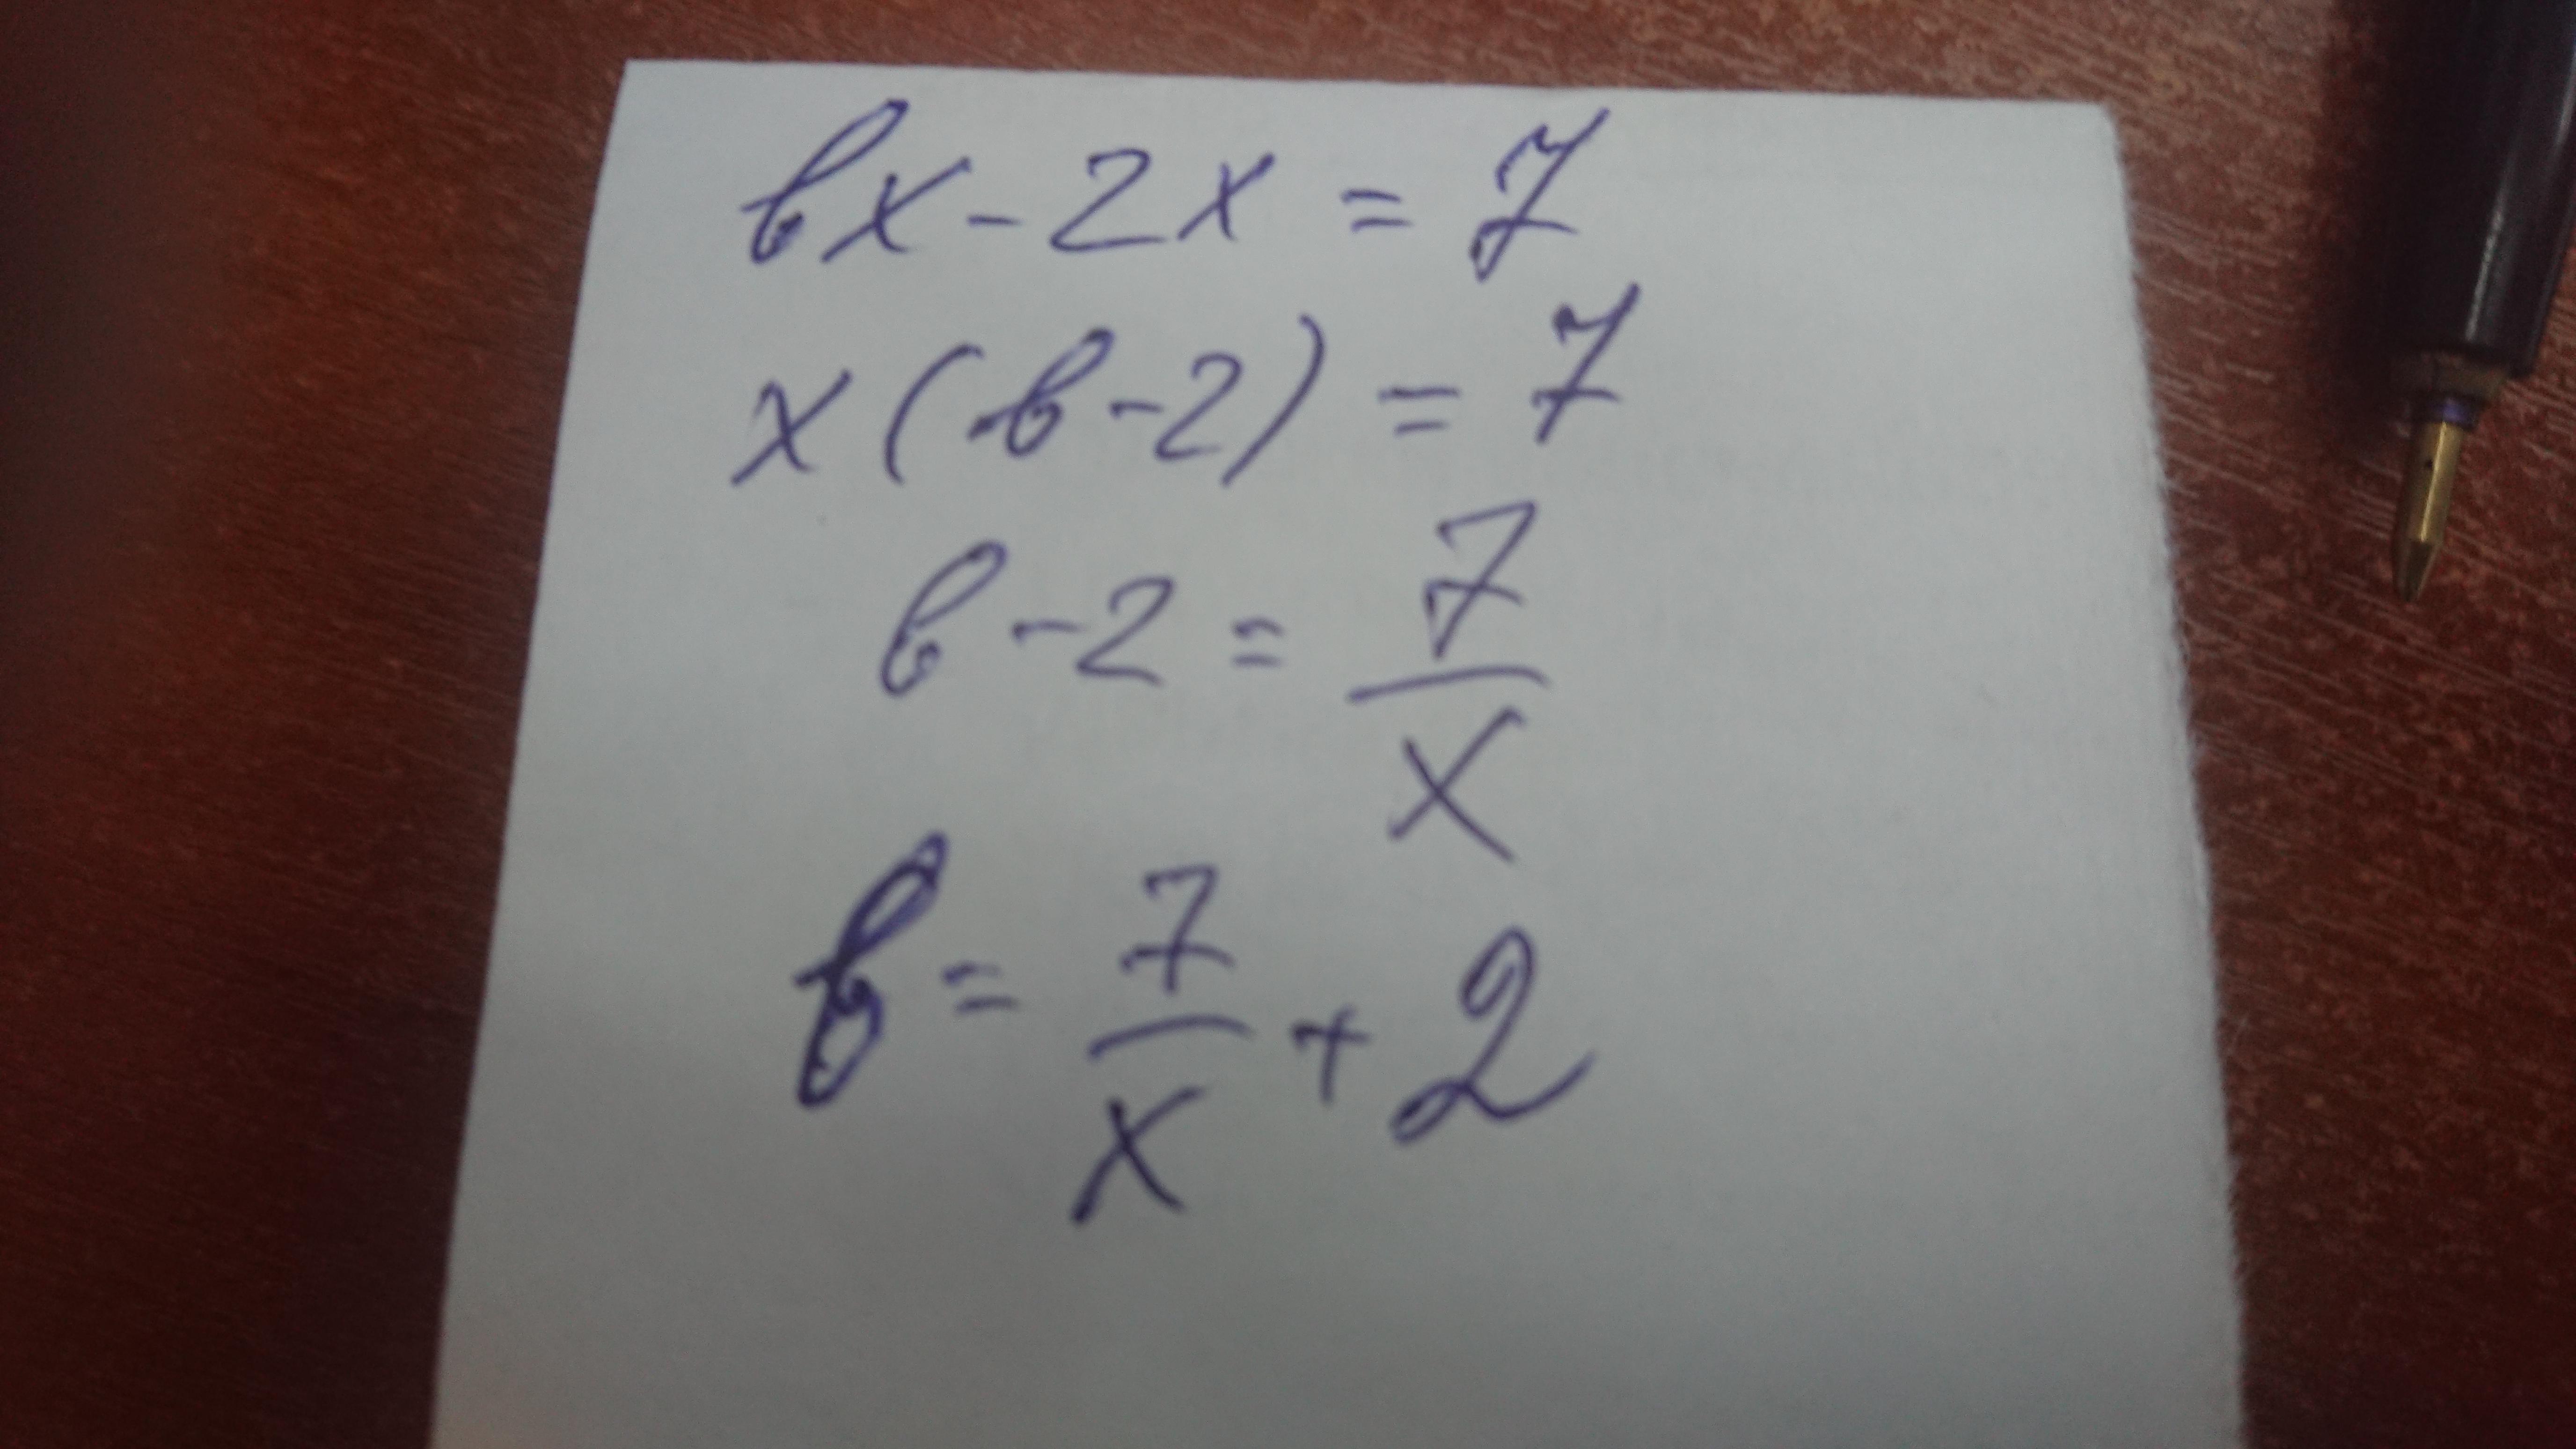 bx - 2x = 7
x(b - 2) = 7
b - 2 = 7/x
b = 7/x + 2